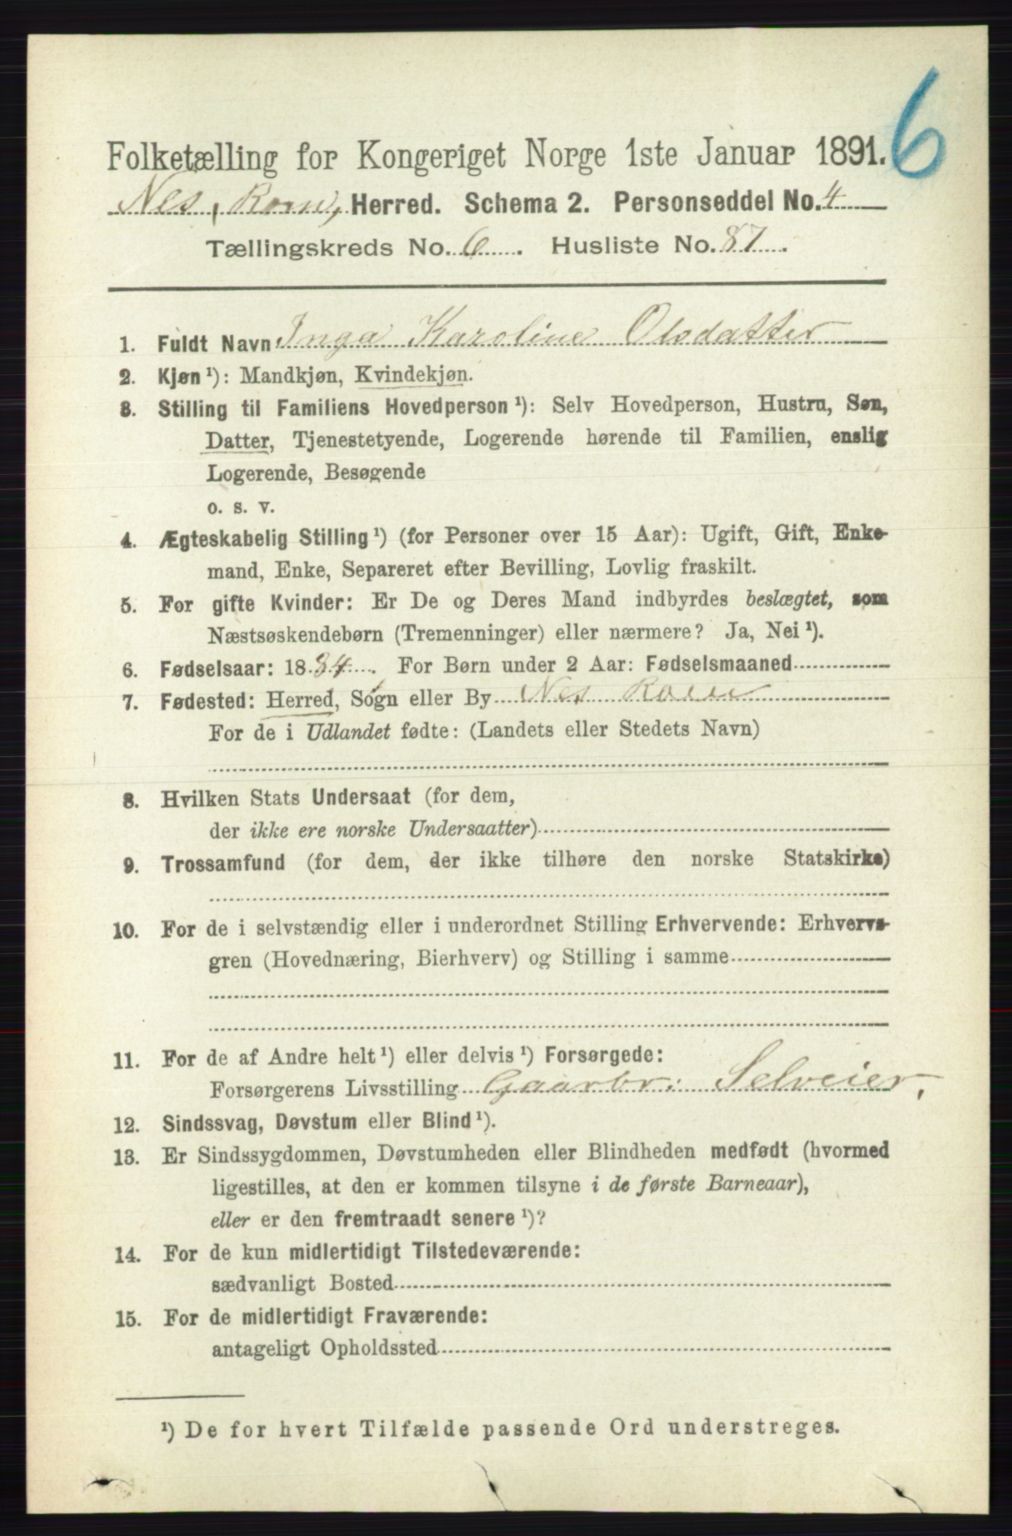 6
Folketælling for Kongeriget Norge 1ste Januar 1891.
Nes, Rom, Herred. Schema 2. Personseddel No. 4
Tællingskreds No. 6. Husliste No. 87.
1. Fuldt Navn Inga Karoline Olsdatter
2. Kjøn ¹): Mandkjøn, Kvindekjøn.
3. Stilling til Familiens Hovedperson ¹): Selv Hovedperson, Hustru, Søn,
Datter, Tjenestetyende, Logerende hørende til Familien, enslig
Logerende, Besøgende
o. s. v.
4. Ægteskabelig Stilling ¹) (for Personer over 15 Aar): Ugift, Gift, Enke-
mand, Enke, Separeret efter Bevilling, Lovlig fraskilt.
5. For gifte Kvinder: Er De og Deres Mand indbyrdes beslægtet, som
Næstsøskendebørn (Tremenninger) eller nærmere? Ja, Nei ¹).
6. Fødselsaar: 1884. For Børn under 2 Aar: Fødselsmaaned
7. Fødested: Herred, Sogn eller By Nes Rom
For de i Udlandet fødte: (Landets eller Stedets Navn)
8. Hvilken Stats Undersaat (for dem,
der ikke ere norske Undersaatter)
9. Trossamfund (for dem, der ikke tilhøre den norske Statskirke)
10. For de i selvstændig eller i underordnet Stilling Erhvervende: Erhvervs-
gren (Hovednæring, Bierhverv) og Stilling i samme
11. For de af Andre helt ¹) eller delvis ¹) Forsørgede:
Forsørgerens Livsstilling Gaarbr: Selveier,
12. Sindssvag, Døvstum eller Blind ¹).
13. Er Sindssygdommen, Døvstumheden eller Blindheden medfødt (hvormed
ligestilles, at den er kommen tilsyne i de første Barneaar),
eller er den fremtraadt senere ¹)?
14. For de kun midlertidigt Tilstedeværende:
sædvanligt Bosted
15. For de midlertidigt Fraværende:
antageligt Opholdssted
¹) De for hvert Tilfælde passende Ord understreges.